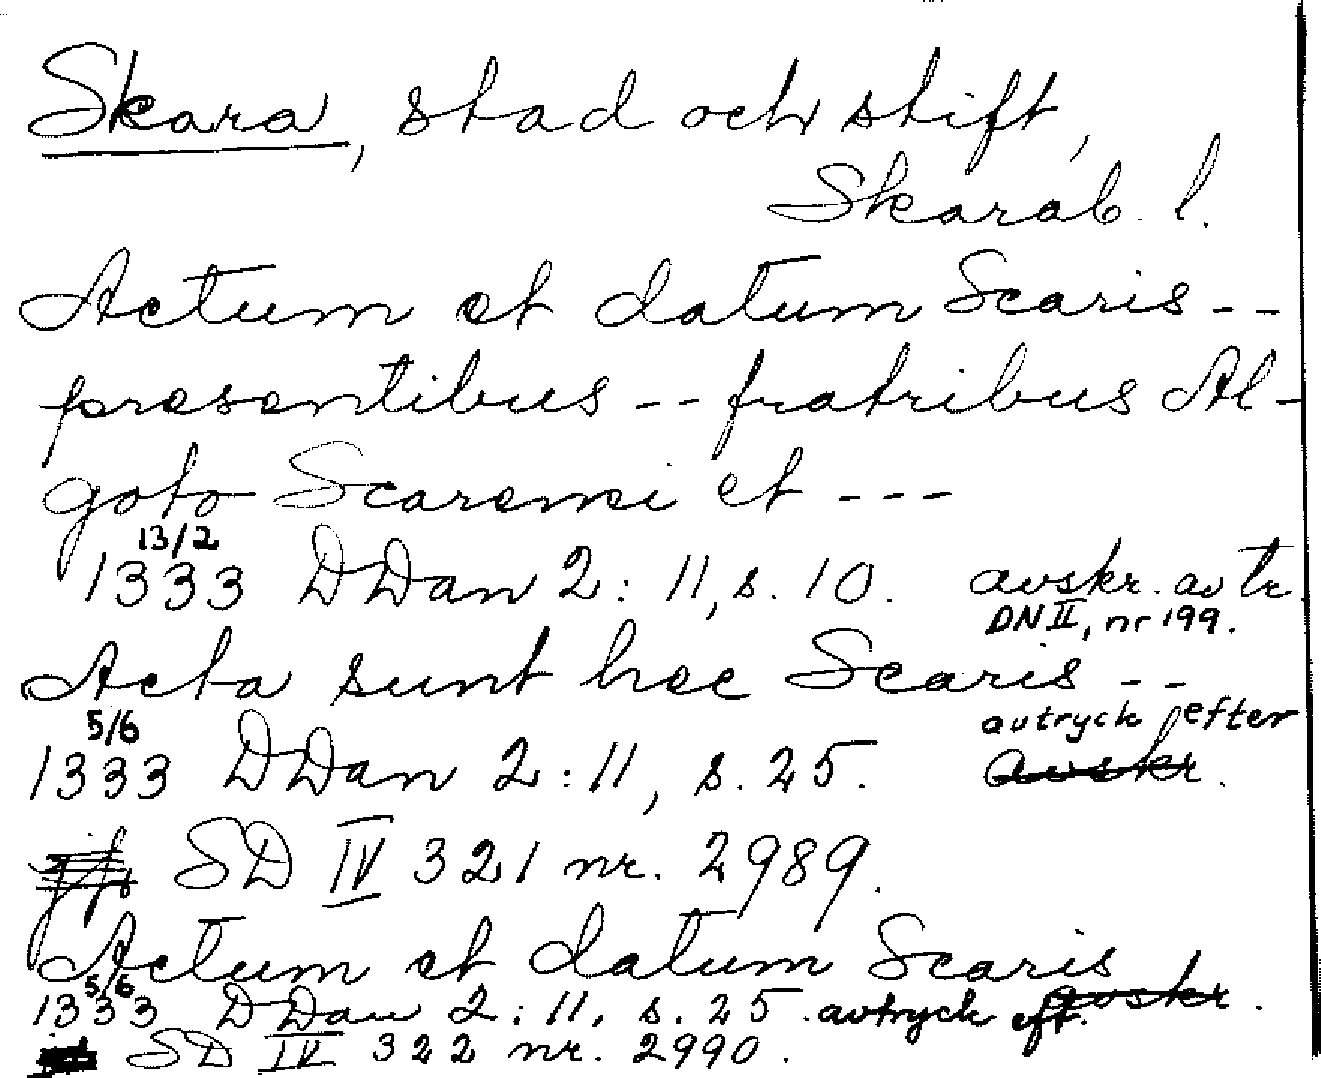 Skara, stad och stift,
Skarab. l.
Actum et datum Scaris --
presentibus -- fratribus Al-
goto Scarensi et ---
13/2
1333 DDan 2: 11, s. 10. avskr. av tr.
DN II, nr 199.
Acta sunt hec Scaris --
5/6 avtryck efter
1333 DDan 2: 11, s. 25. avskr.
SD IV 321 nr. 2989.
Actum et datum Scaris
5/6
1333 DDan 2: 11, s. 25. avtryck eft. avskr.
SD IV 322 nr. 2990.